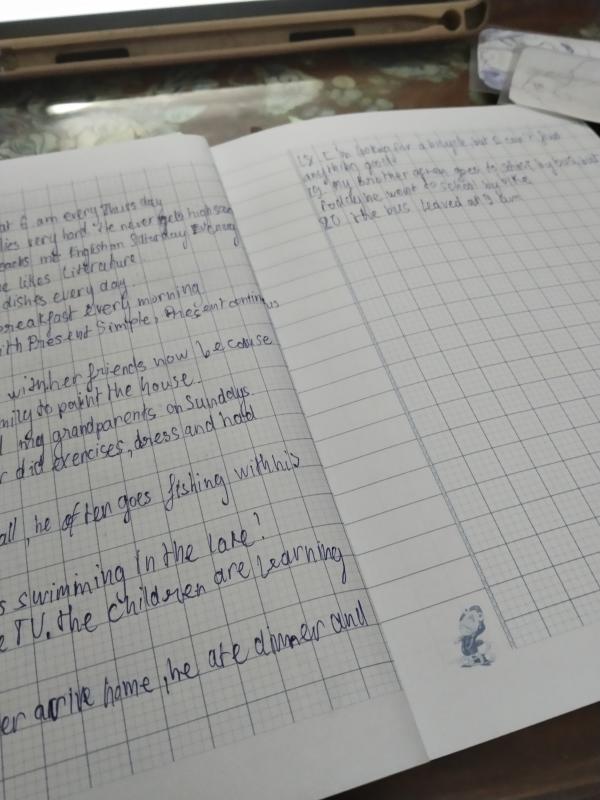 at 6 am every Thurs day
lies very hard. He never gets high
me English on Saturday Evening
he likes literature
dishes every day
breakfast every morning
ith Present Simple, Present continus
with her friends now because
mily to paint the house.
my grandparents on Sundays.
r did exercises, dress and hold
all, he often goes fishing with his
s swimming in the lake?
e TV. the children are learning
er arrive home, he ate dinner and
18. I'm for a bicycle, but I can't
anything good
19. my Brother often goes to school by bus, but
today he went to school by
20 the bus leaved at 9